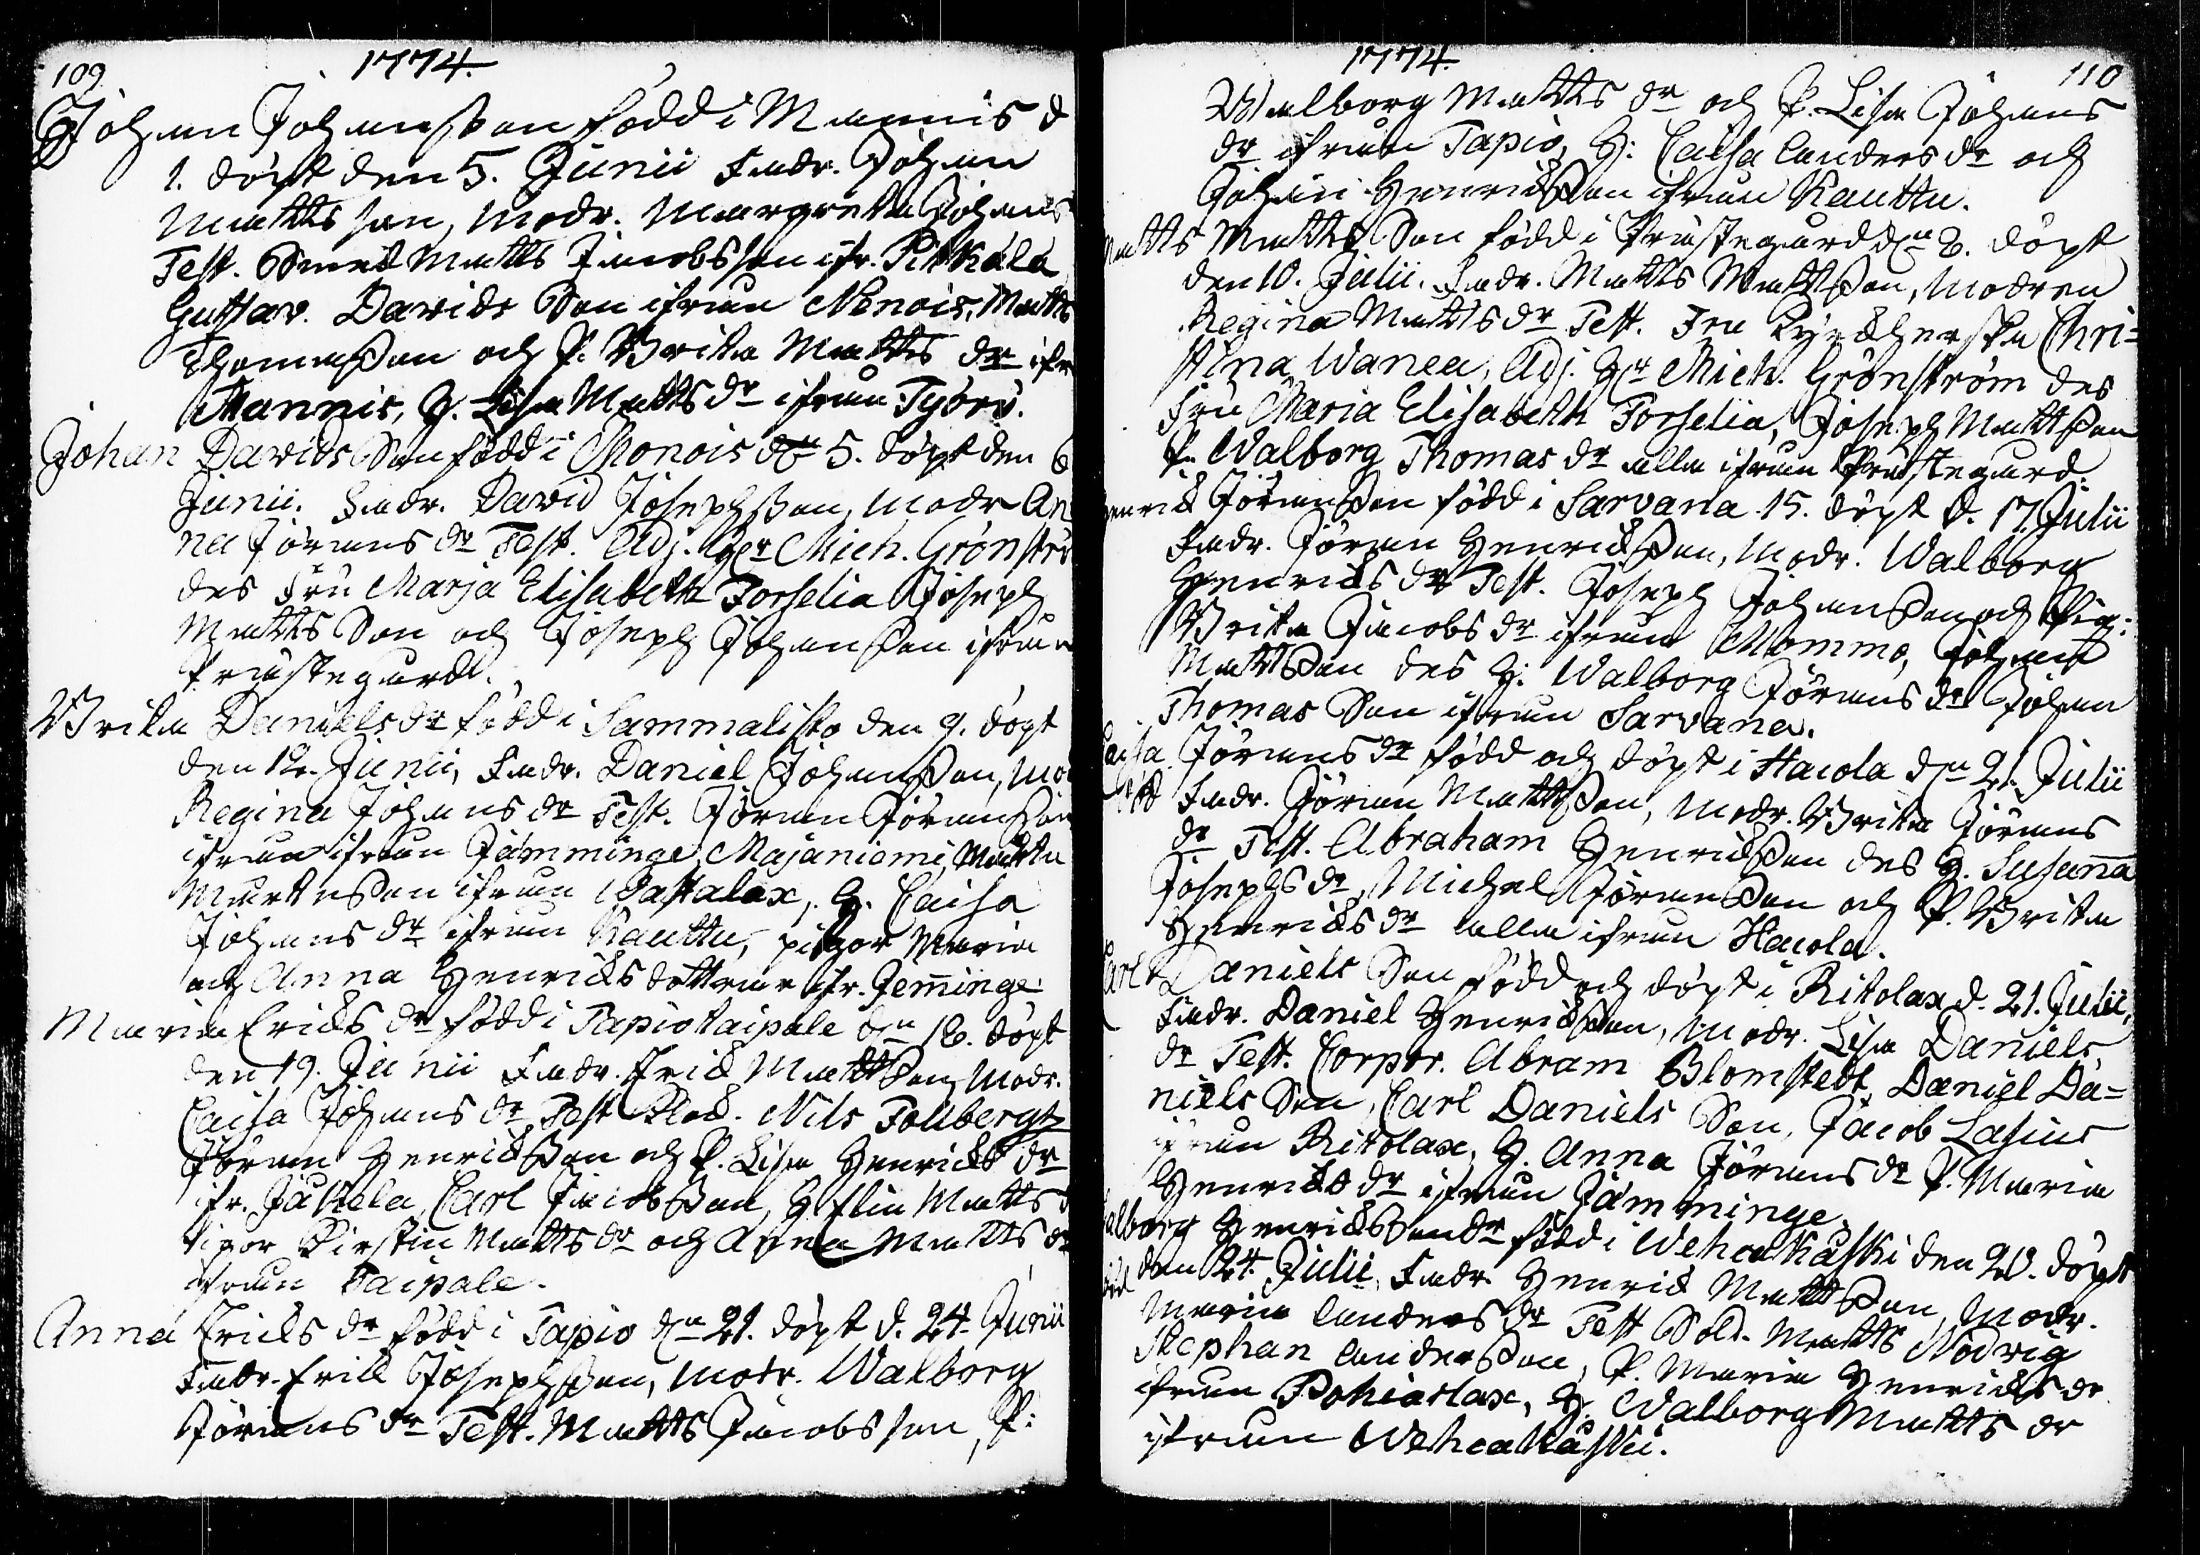 109
1774.
Johan Johansson född i Mannis d
1. döpt den 5. Junii Fadr. Johan
Matts son, Modr. Margreta Johans
Test. Matts Jacobsson ifr. Pitkälä
Gustav. Davids Son ifrån Nenois, Matts
Thomasson och P. Brita Matts dr ifr
Mannis, H. Lisa Matts dr ifrån Työrv.
Johan Davids Son född i Monois dn 5. döpt den 6
Junii. Fadr. David Josephsson, Modr An
na Jörans dr Test. Adj. Hr Mich. Grönströ
des Fru Marja Elisabeth Forselia Joseph
Matts Son och Joseph Johansson ifrån
Prästegård.
Brita Daniels dr född i Sammalisto den 9. döpt
den 12. Junii, Fadr. Daniel Johansson, Mo
Regina Johans dr Test. Jöran Jöransson
ifrån ifrån Jämminge Majaniemi, Mårtn
Mårtensson ifrån Wastalax, H. Caisa
Johans dr ifrån Kauttu, pigor Maria
och Anna Henricks döttrar ifr. Jeminge.
Maria Ericks dr född i Tapiotaipale dn 18. döpt
den 19. Junii Fadr. Erick Mattsson, Modr.
Caisa Johans dr Test Nils Follbergh
Jöran Henricksson och P. Lisa Henricks dr
ifr. Jäkelä, Carl Jacobsson, H. Elin Matts d
Pigor Kirstin Matts dr och Anna Matts dr
ifrån Taipale.
Anna Ericks dr född i Tapio dn 21. döpt d. 24. Junii
Fadr. Erick Josephsson, Modr. Walborg
Jörans dr Test. Matts Jacobsson, P:
1774.
110
Walborg Matts dr och P. Lisa Johans
dr ifrån Tapio, H: Caisa Anders dr och
Johan Henricksson ifrån Kauttu.
Matts Matts Son född i Prästegård dn 8. döpt
den 10. Julii. Fadr. Matts Mattsson, Modren
Regina Matts dr Test. Fru Kyrckherska Chri=
stina Wanea, Adj. Hr Mich. Grönström des
Fru Maria Elisabeth Forselia, Joseph Mattsson
P. Walborg Thomas dr alla ifrån Prästegård.
Henrick Jöransson född i Sarvana 15. döpt d. 17. Julii
Fadr. Jöran Henricksson, Modr. Walborg
Henricks dr Test. Joseph Johansson och Pig:
Brita Jacobs dr ifrån Mommo, Johan
Mattsson des H: Walborg Jörans dr Johan
Thomas Son ifrån Sarvana.
Caisa Jörans dr född och döpt i Hacola dn 21. Julii
Fadr. Jöran Mattsson, Modr. Brita Jörans
dr Test. Abraham Henricksson des H. Susanna
Josephs dr, Michel Jöransson och P. Brita
Henricks dr alla ifrån Hacola.
Carl Daniels Son född och döpt i Ritolax d. 21. Julii,
Fadr. Daniel Henricksson, Modr. Lisa Daniels
dr Test. Corpor. Abram Blomstedt, Daniel Da=
niels Son, Carl Daniels Son, Jacob Lasius
ifrån Ritolax, H. Anna Jörans dr P. Maria
Henricks dr ifrån Jämminge.
Walborg Henricksson dr född i Wehcakåski den 20. döpt
den 24. Julii, Fadr. Henrick Mattsson, Modr.
Maria Anders dr Test Sold. Matts Nödvig
Stephan Andersson, P. Maria Henricks dr
ifrån Pohiaslax, H Walborg Matts dr
ifrån Wehcakåski.